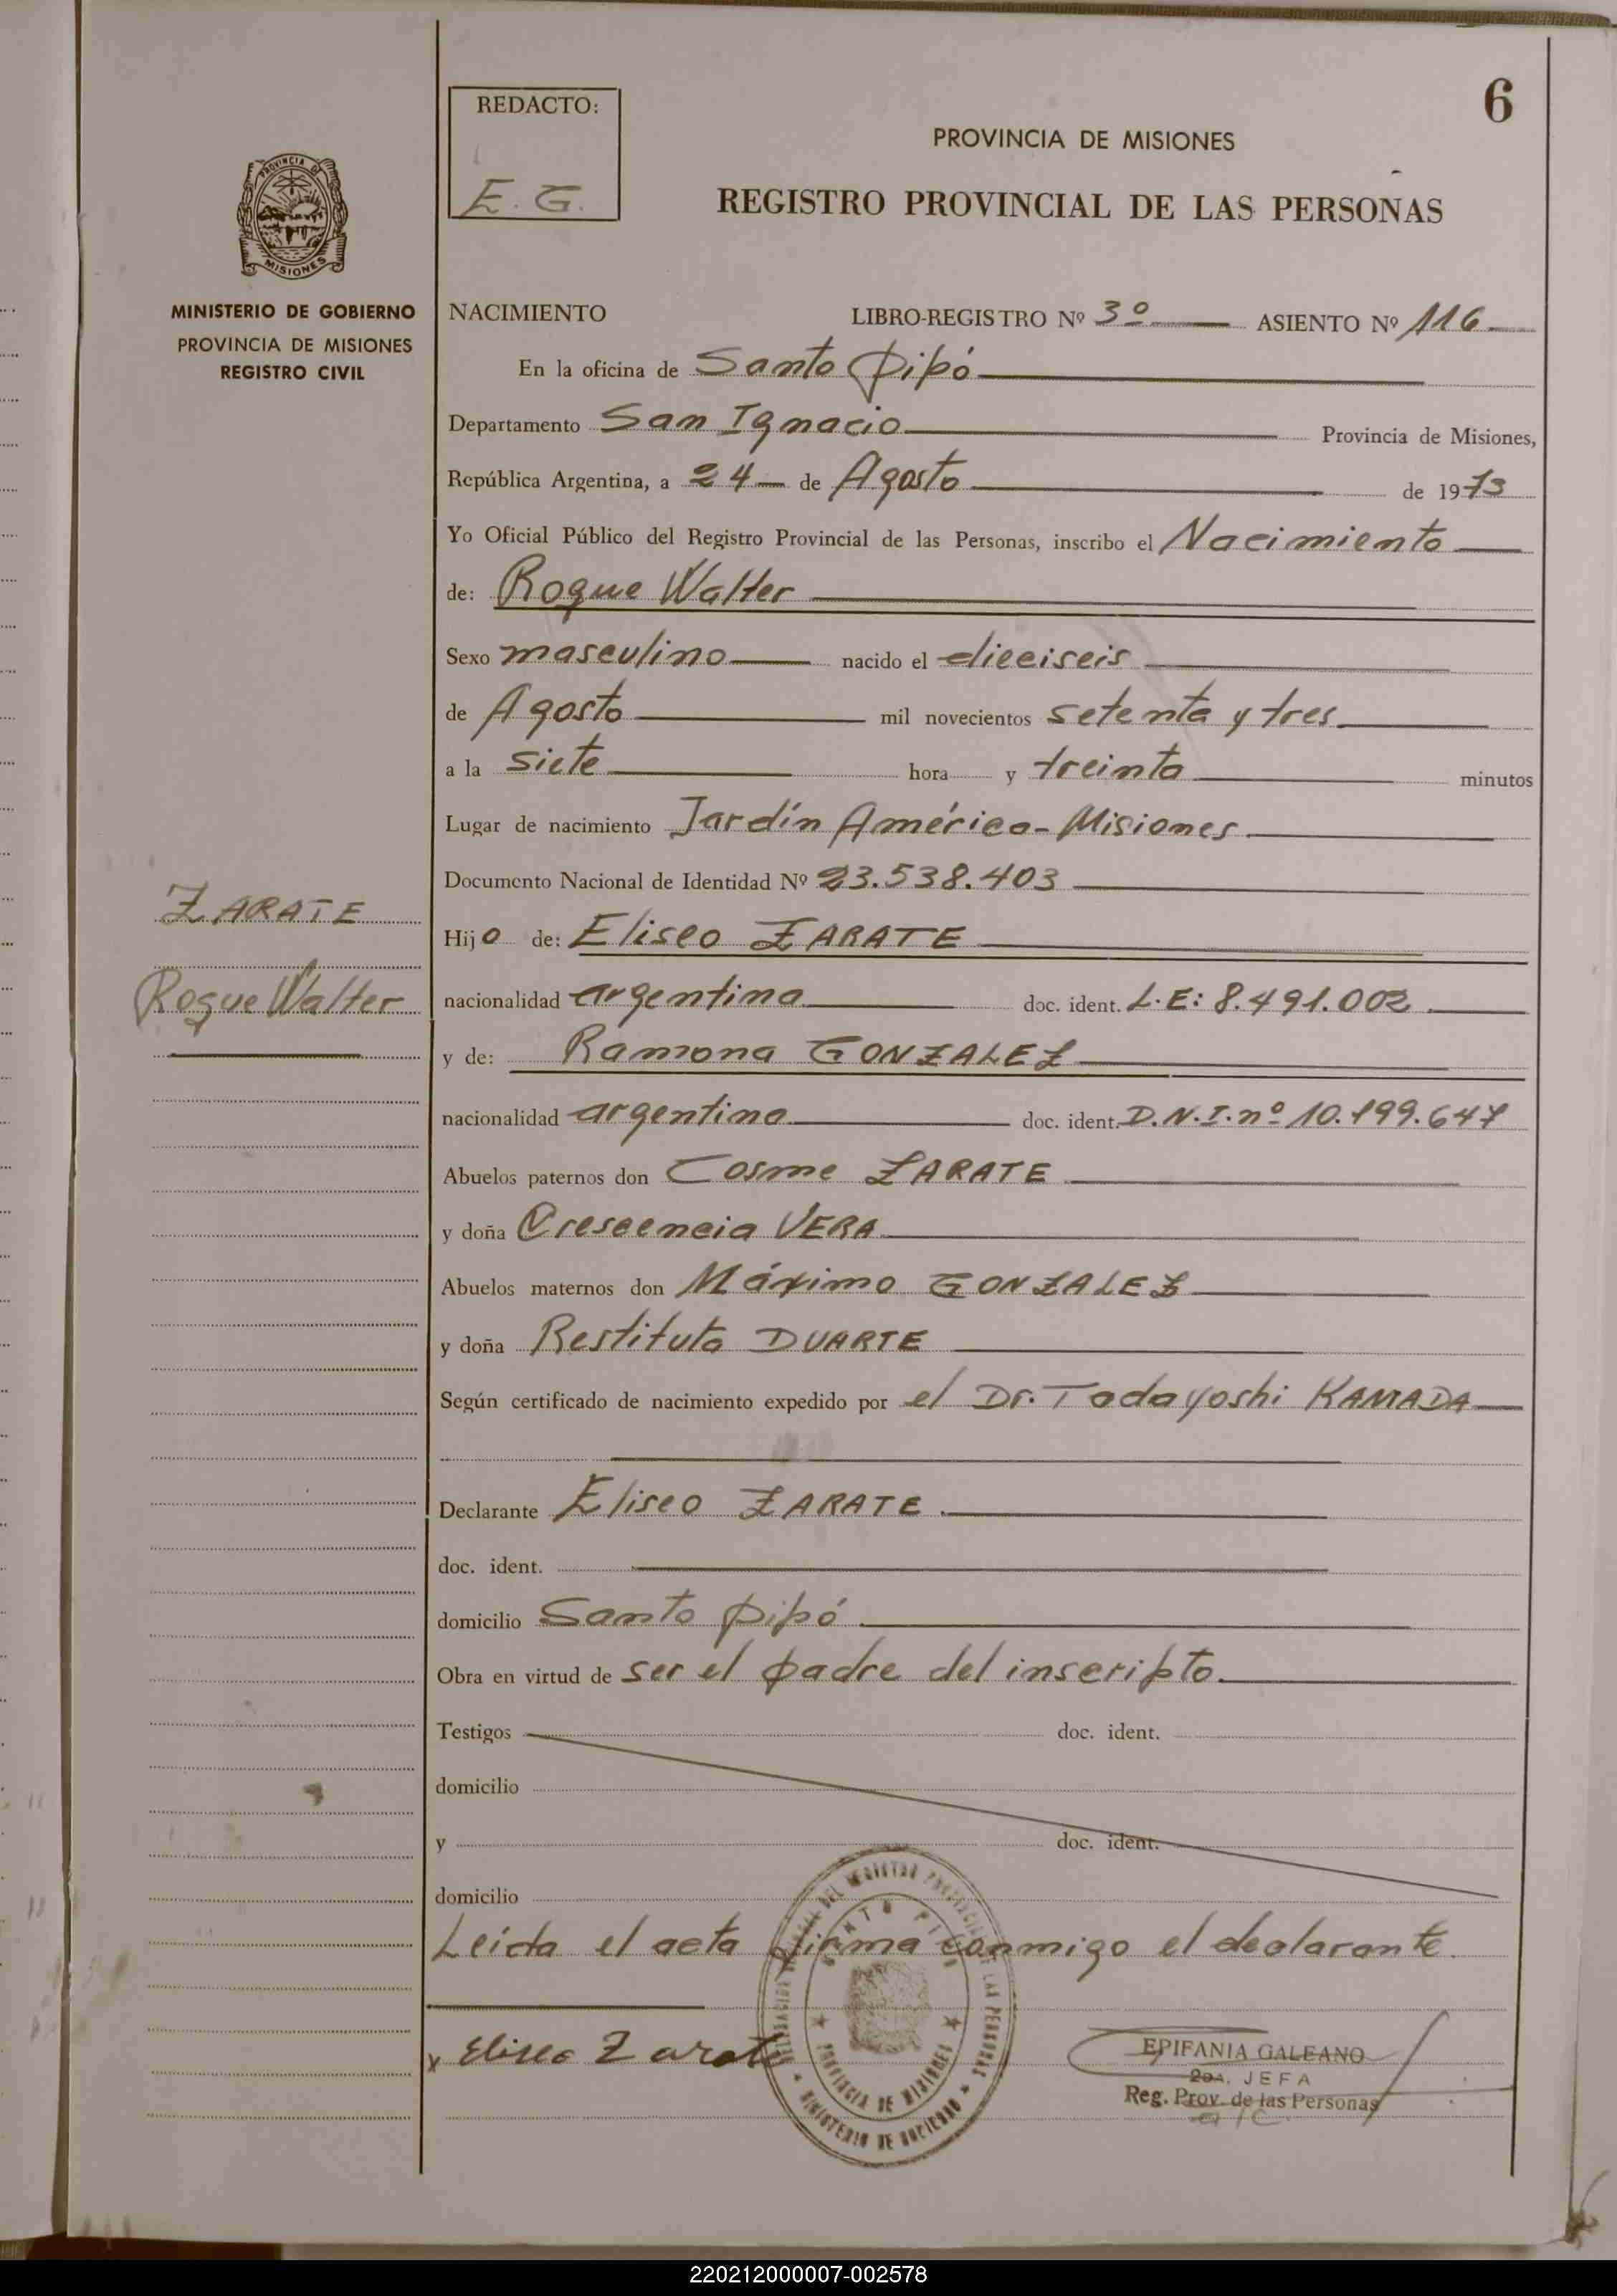 6
REDACTO:
E. G.
PROVINCIA DE MISIONES
REGISTRO PROVINCIAL DE LAS PERSONAS
PROVINCIA DE
MISIONES
MINISTERIO DE GOBIERNO
PROVINCIA DE MISIONES
REGISTRO CIVIL
NACIMIENTO LIBRO-REGISTRO Nº 3º ASIENTO Nº 116
En la oficina de Santo Pipó
Departamento San Ignacio Provincia de Misiones,
República Argentina, a 24 de Agosto de 1973
Yo Oficial Público del Registro Provincial de las Personas, inscribo el Nacimiento
de: Roque Walter
Sexo masculino nacido el dieciseis
de Agosto mil novecientos setenta y tres
a la siete hora y treinta minutos
Lugar de nacimiento Jardín América - Misiones
Documento Nacional de Identidad Nº 23.538.403
ZARATE
Hijo de: Eliseo ZARATE
Roque Walter
nacionalidad argentina doc. ident. L.E: 8.491.002
y de: Ramona GONZALEZ
nacionalidad argentina doc. ident. D.N.I. nº 10.199.647
Abuelos paternos don Cosme ZARATE
y doña Crescencia VERA
Abuelos maternos don Máximo GONZALEZ
y doña Restituta DUARTE
Según certificado de nacimiento expedido por el Dr. Tadayoshi KAMADA
Declarante Eliseo ZARATE
doc. ident.
domicilio Santo Pipó
Obra en virtud de ser el padre del inscripto
Testigos doc. ident.
domicilio
y doc. ident.
domicilio
Leída el acta firma conmigo el declarante.
x Eliseo Zarate
DELEGACION DEL REGISTRO PROVINCIAL DE LAS PERSONAS
SANTO PIPO
PROVINCIA DE MISIONES
MINISTERIO DE GOBIERNO
EPIFANIA GALEANO
2DA. JEFA
Reg. Prov. de las Personas
a/c.
220212000007-002578